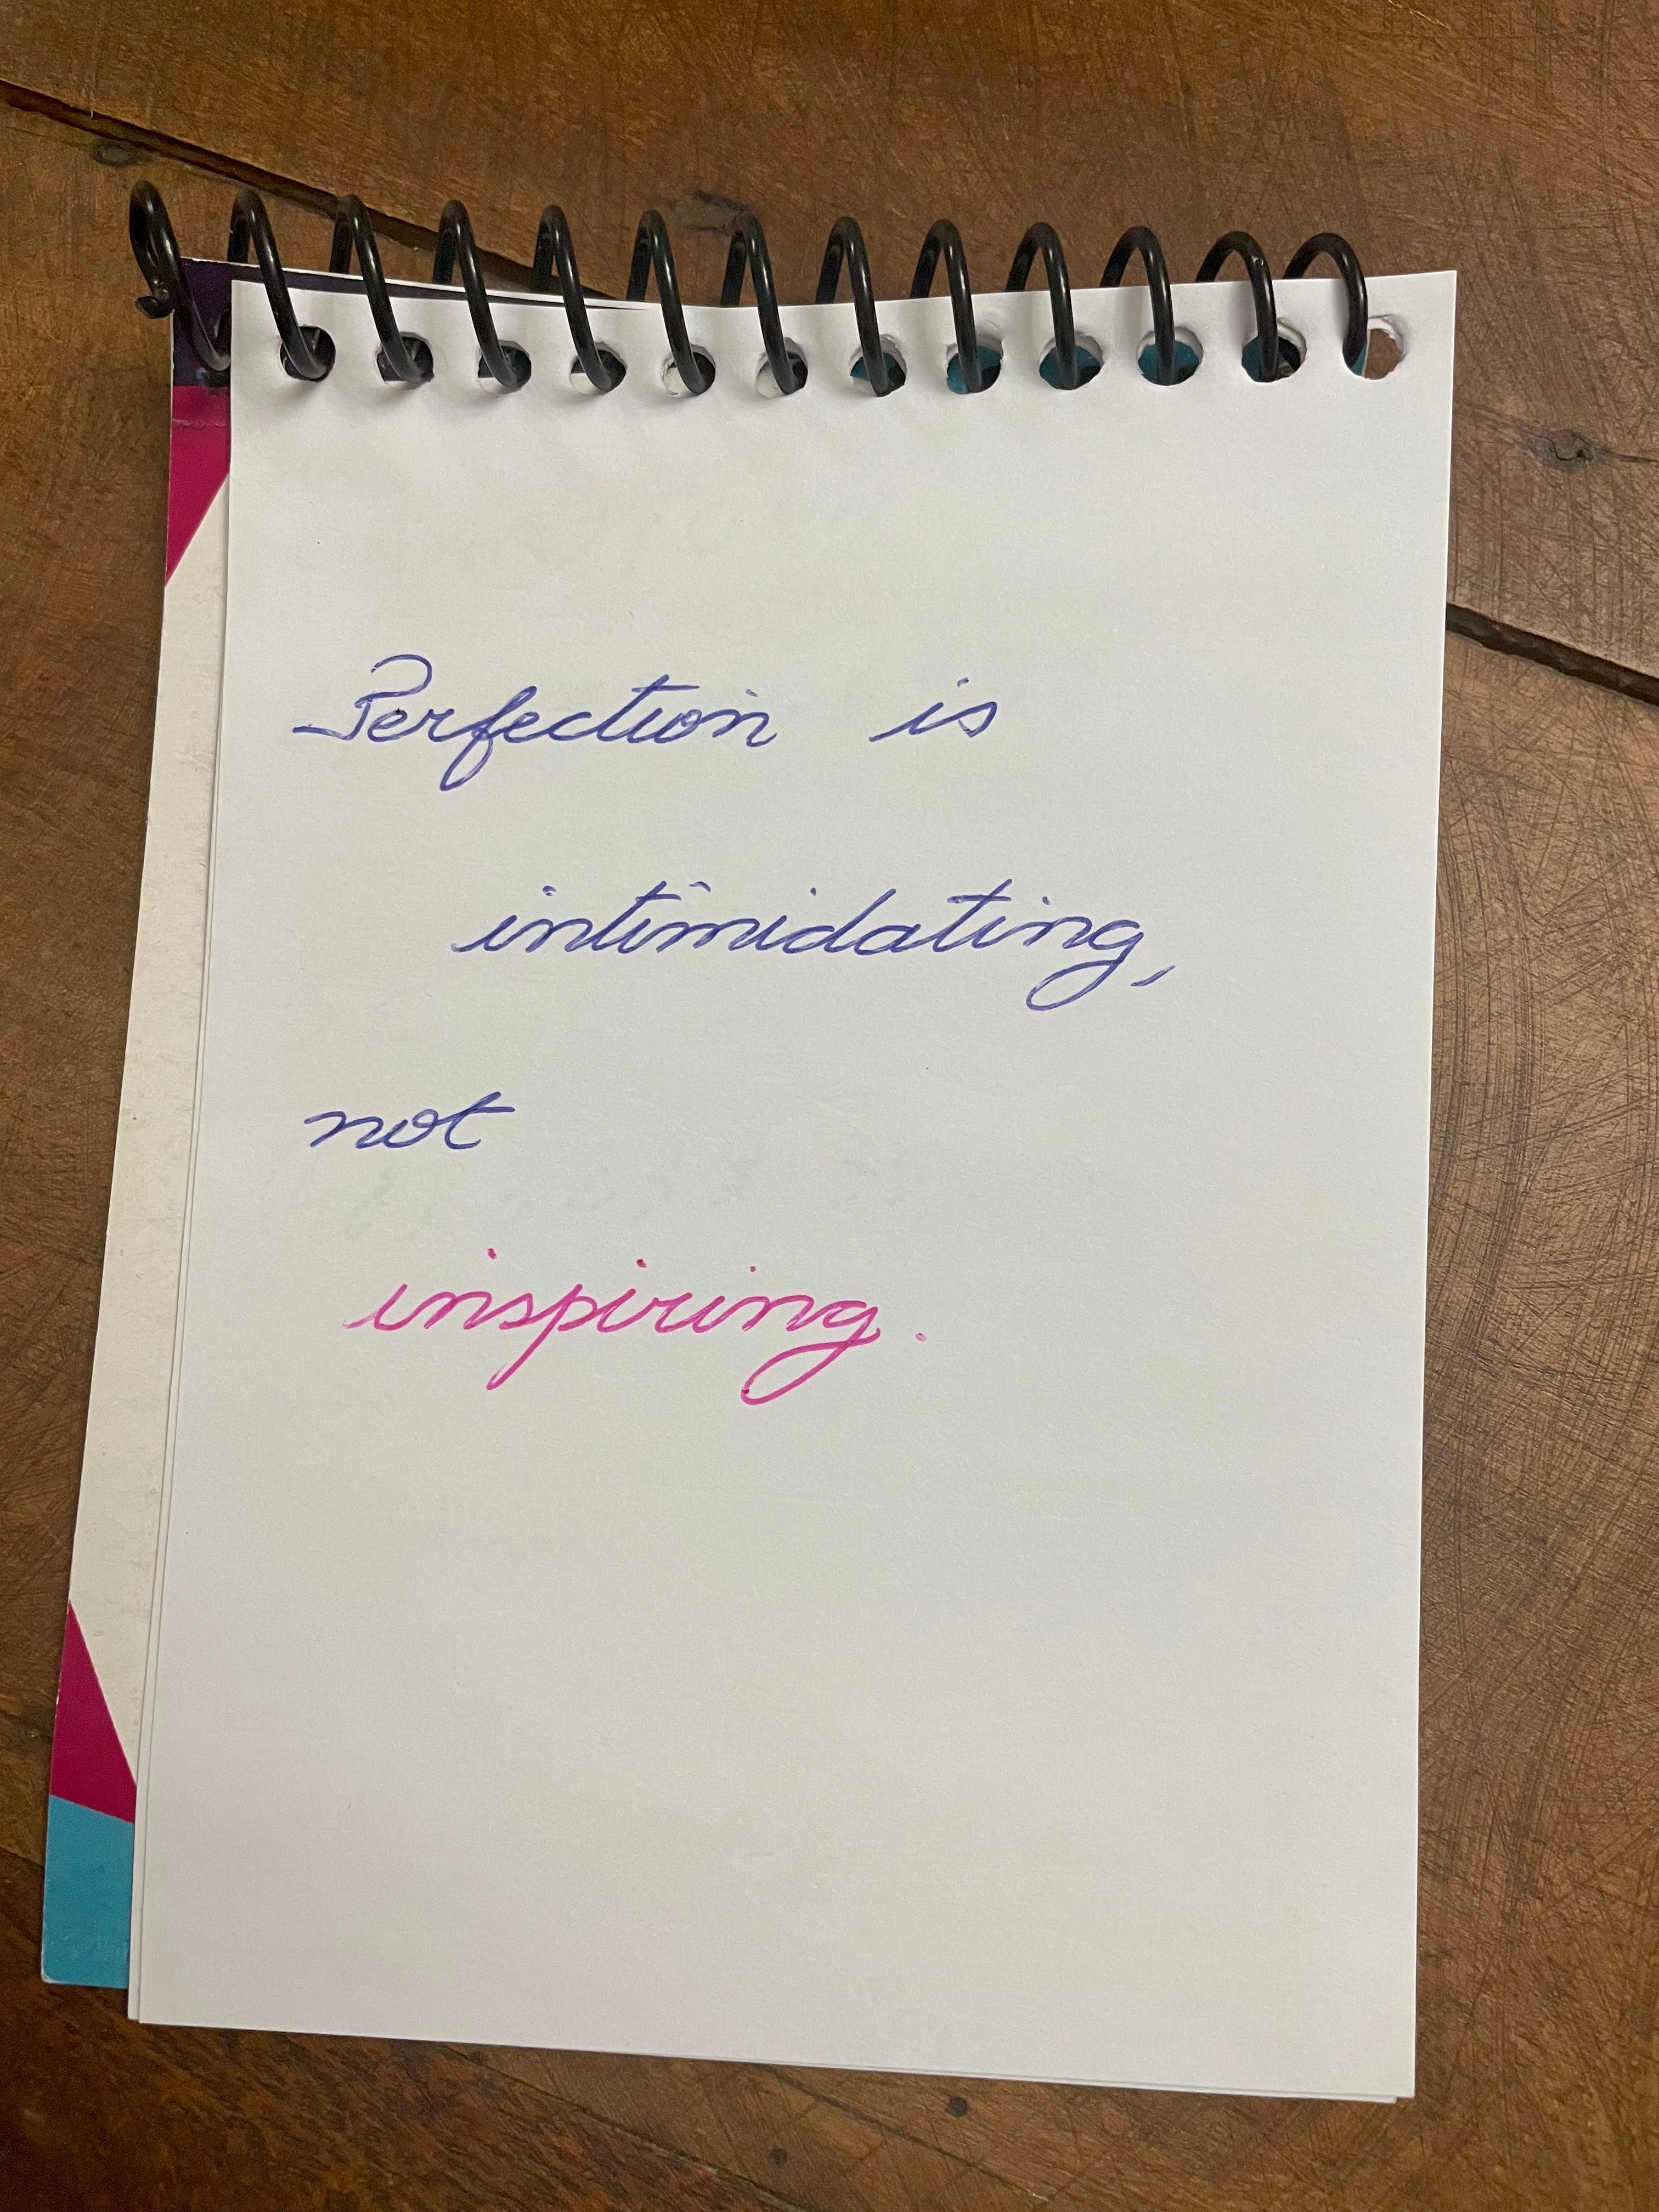 Perfection is
intimidating,
not
inspiring.